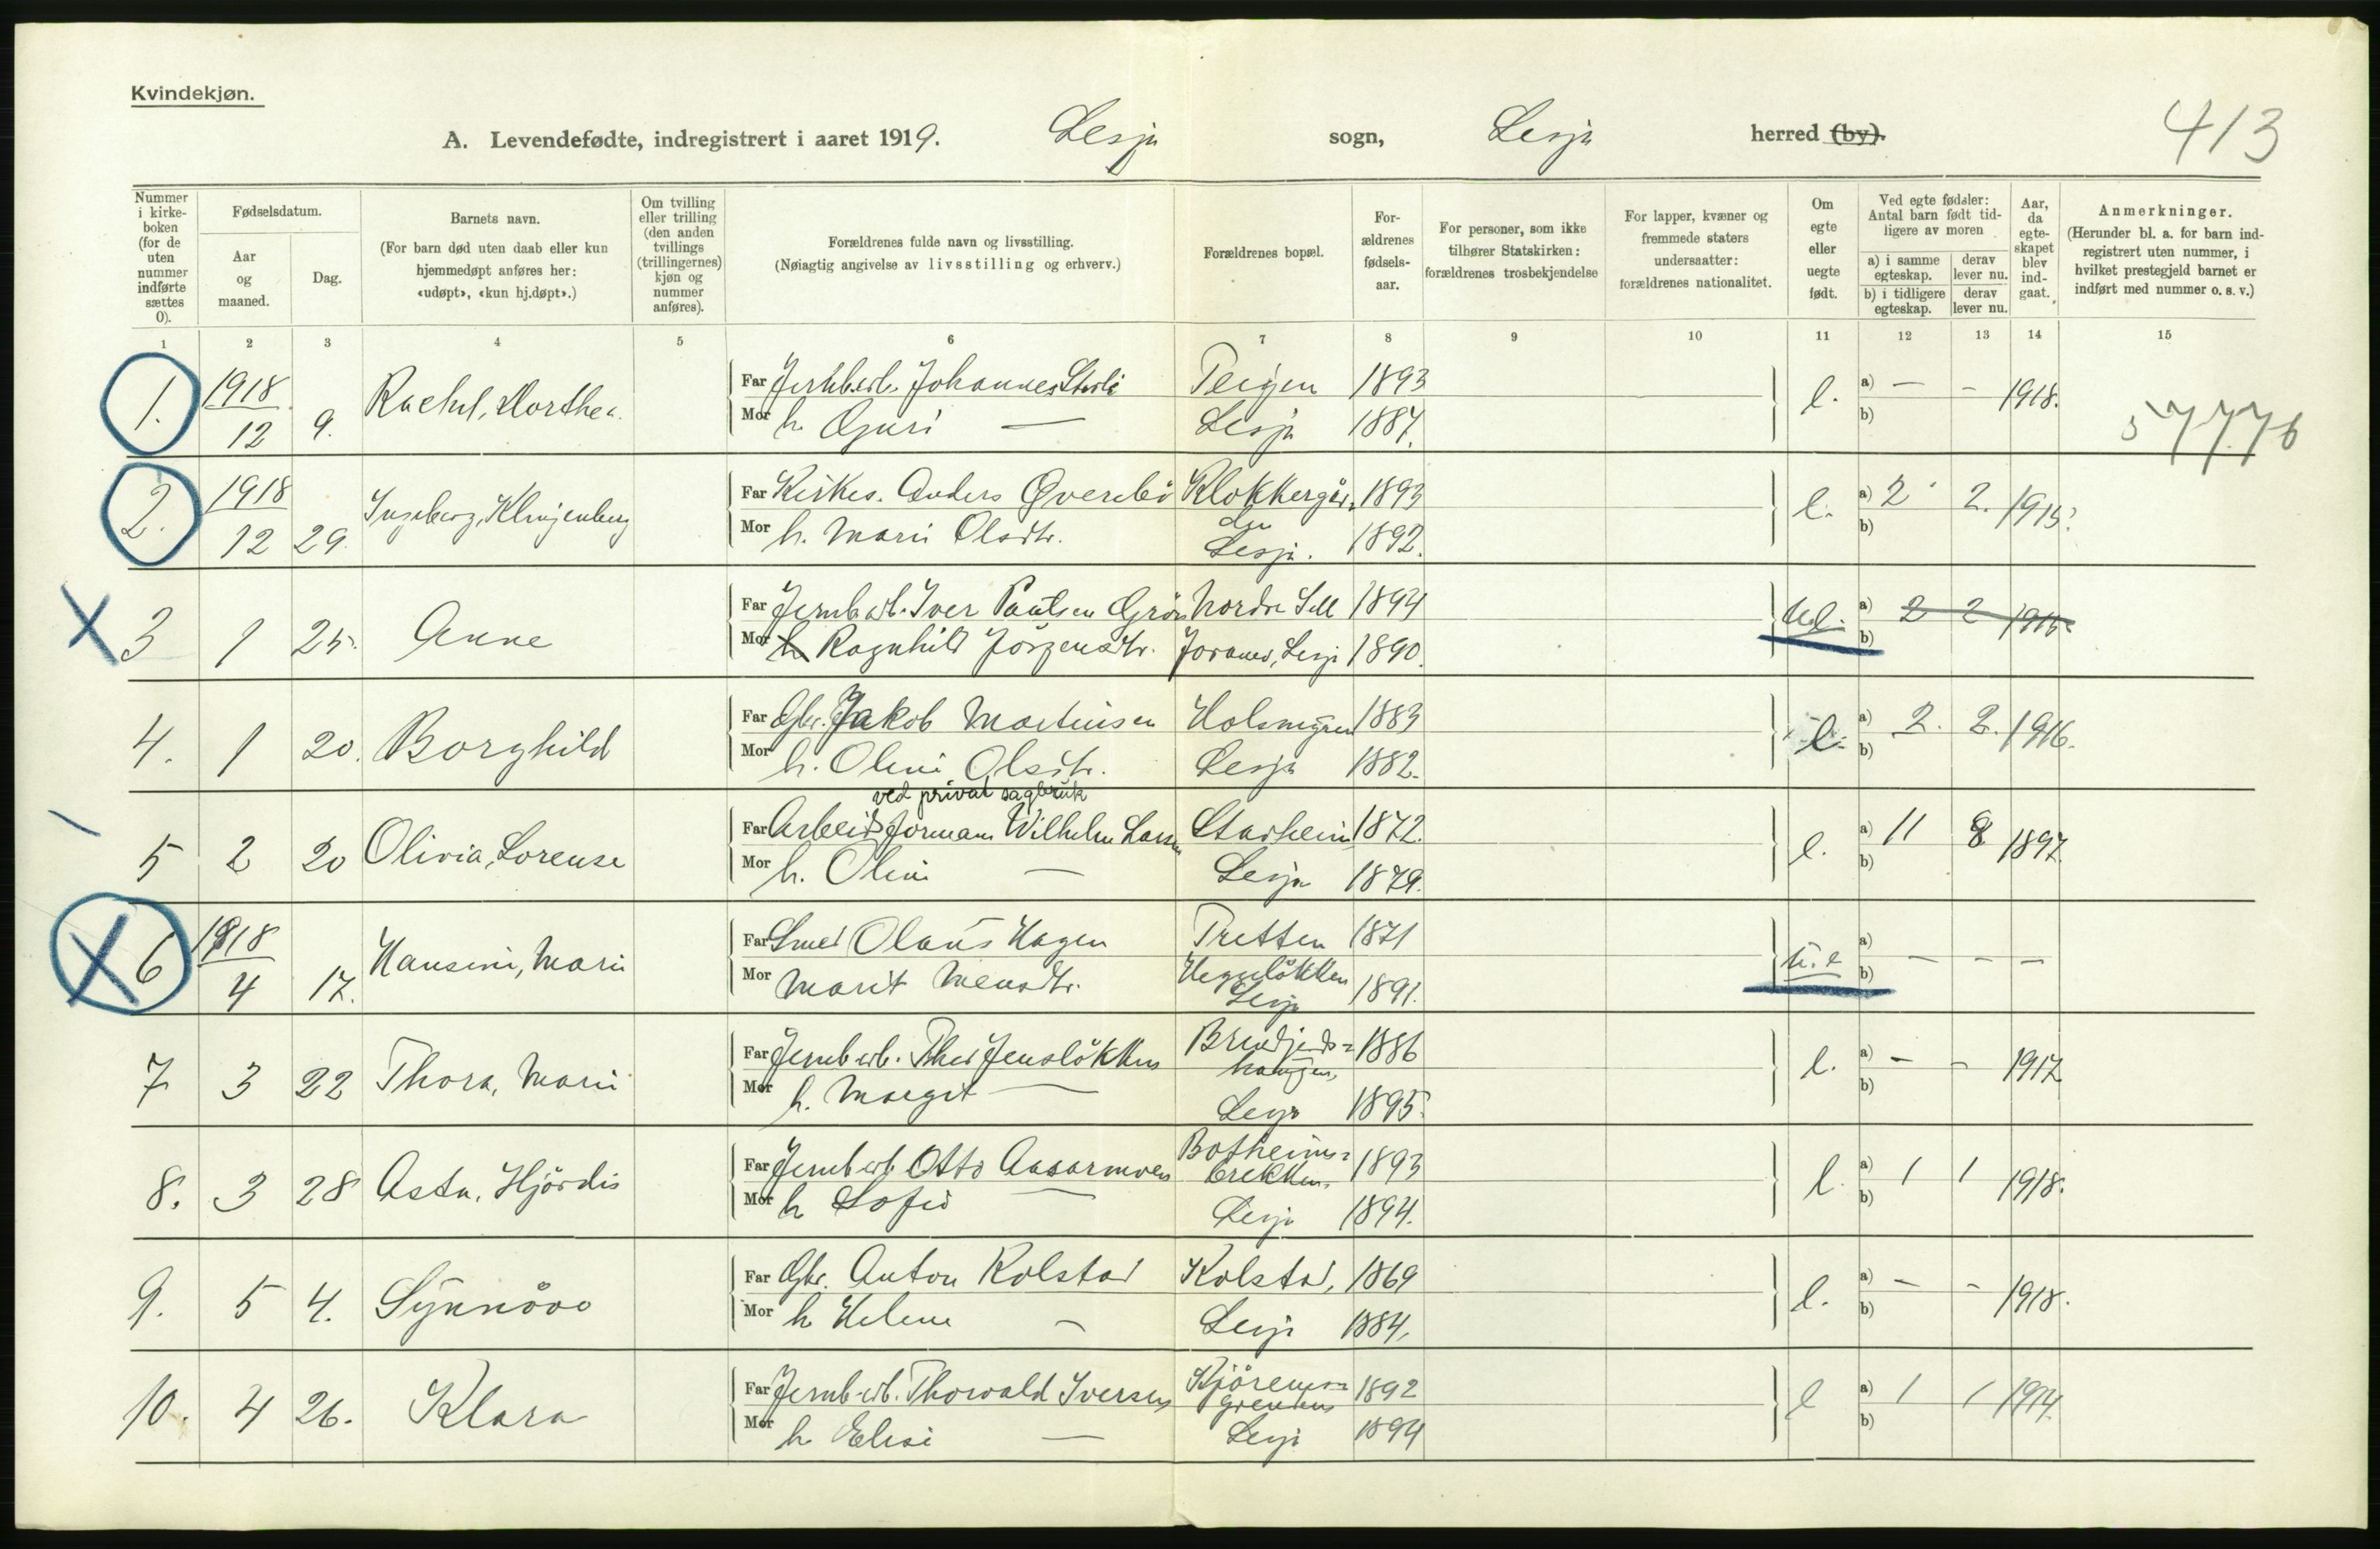 Kvindekjøn.
A. Levendefødte, indregistrert i aaret 1919. Lesja sogn, Lesja herred (by). 413
Nummer i kirke-boken (for de uten nummer indførte sættes 0).
Fødselsdatum.
Aar og maaned.
Dag.
Barnets navn.
(For barn død uten daab eller kun hjemmedøpt anføres her: «udøpt», «kun hj.døpt».)
Om tvilling eller trilling (den anden tvillings (trillingernes) kjøn og nummer anføres).
Forældrenes fulde navn og livsstilling.
(Nøiagtig angivelse av livsstilling og erhverv.)
Forældrenes bopæl.
For-ældrenes fødsels-aar.
For personer, som ikke tilhører Statskirken: forældrenes trosbekjendelse
For lapper, kvæner og fremmede staters undersaatter: forældrenes nationalitet.
Om egte eller uegte født.
Ved egte fødsler: Antal barn født tid-ligere av moren
a) i samme egteskap.
derav lever nu.
b) i tidligere egteskap.
derav lever nu.
Aar, da egte-skapet blev ind-gaat.
Anmerkninger.
(Herunder bl. a. for barn ind-registrert uten nummer, i hvilket prestegjeld barnet er indført med nummer o. s. v.)
1 2 3 4 5 6 7 8 9 10 11 12 13 14 15
1. 1918 12 9. Rachel, Dorthea. Far Jernb.arb. Johannes Teigen 1893 e. a) — - 1918.
Mor h. Guri — Lesja 1887. b)
57776
2. 1918 12 29. Ingeborg, Klingenberg Far Kirkes. Anders Øverebø Klokkergår- 1893 e. a) 2 2. 1915.
Mor h. Mari Olsdtr. den Lesja. 1892. b)
X 3 1 25. Anne Far Jernb.arb. Iver Paulsen Grön Nordre Sell 1894 u.e. a) 2 2 1915
Mor h. Ragnhild Jörgensdtr. Joramo, Lesja 1890. b)
4. 1 20. Borghild Far Gbr. Jakob Martinsen Holsmyren 1883 e. a) 2. 2. 1916.
Mor h. Oline Olsdtr. Lesja 1882. b)
ved privat sagbruk
5 2 20 Olivia, Lorense Far Arbeidsformann Wilhelm Larsen Starheim 1872. e. a) 11 8 1897
Mor h. Oline — Lesja 1879. b)
X 6 1918 4 17. Hansine, Marie Far Smed Olaus Hagen Tretten 1871 u.e a)
Mor Marit Mensdtr. Heggelökken Lesja 1891. b) — — —
7 3 22 Thora, Marie Far Jernb.arb. Thor Jenslökken 1886 e. a) - - 1917
Mor h. Margit — Lesja 1895. b)
8. 3 28 Asta, Hjördis Far Jernb.arb. Otto Aasarmoen Botheims- brekken, 1893 e. a) 1 1 1918.
Mor h Sofie — Lesja 1894. b)
9. 5 4. Synnöve Far Gbr. Anton Kolstad Kolstad, 1869 e. a) — - 1918.
Mor h Helene — Lesja 1884. b)
10. 4 26. Klara Far Jernb.arb. Thorvald Iversen Kjörems- grenden 1892 e a) 1 1 1914.
Mor h Elise — Lesja 1894 b)